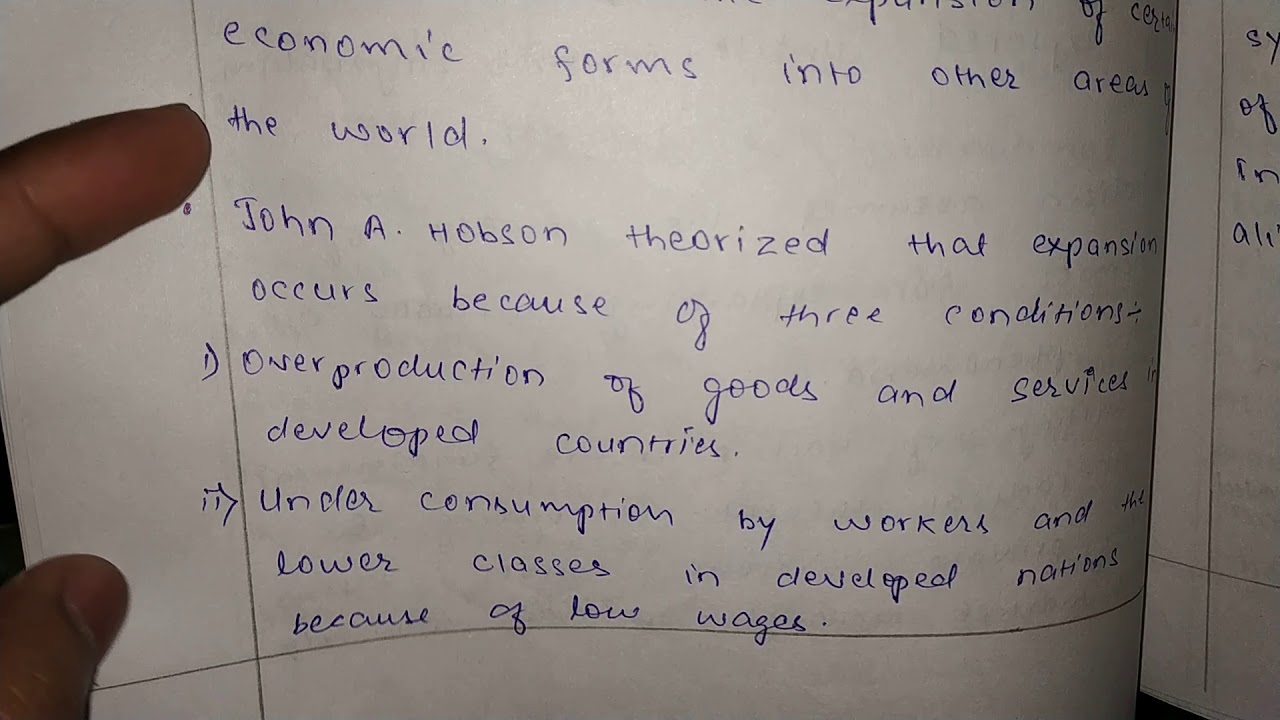 expansion of
economic forms into other areas of
the world.
• John A. Hobson theorized that expansion
occurs because of three conditions:-
i) Overproduction of goods and services in
developed countries.
ii) Under consumption by workers and the
lower classes in developed nations
because of low wages.
of
in